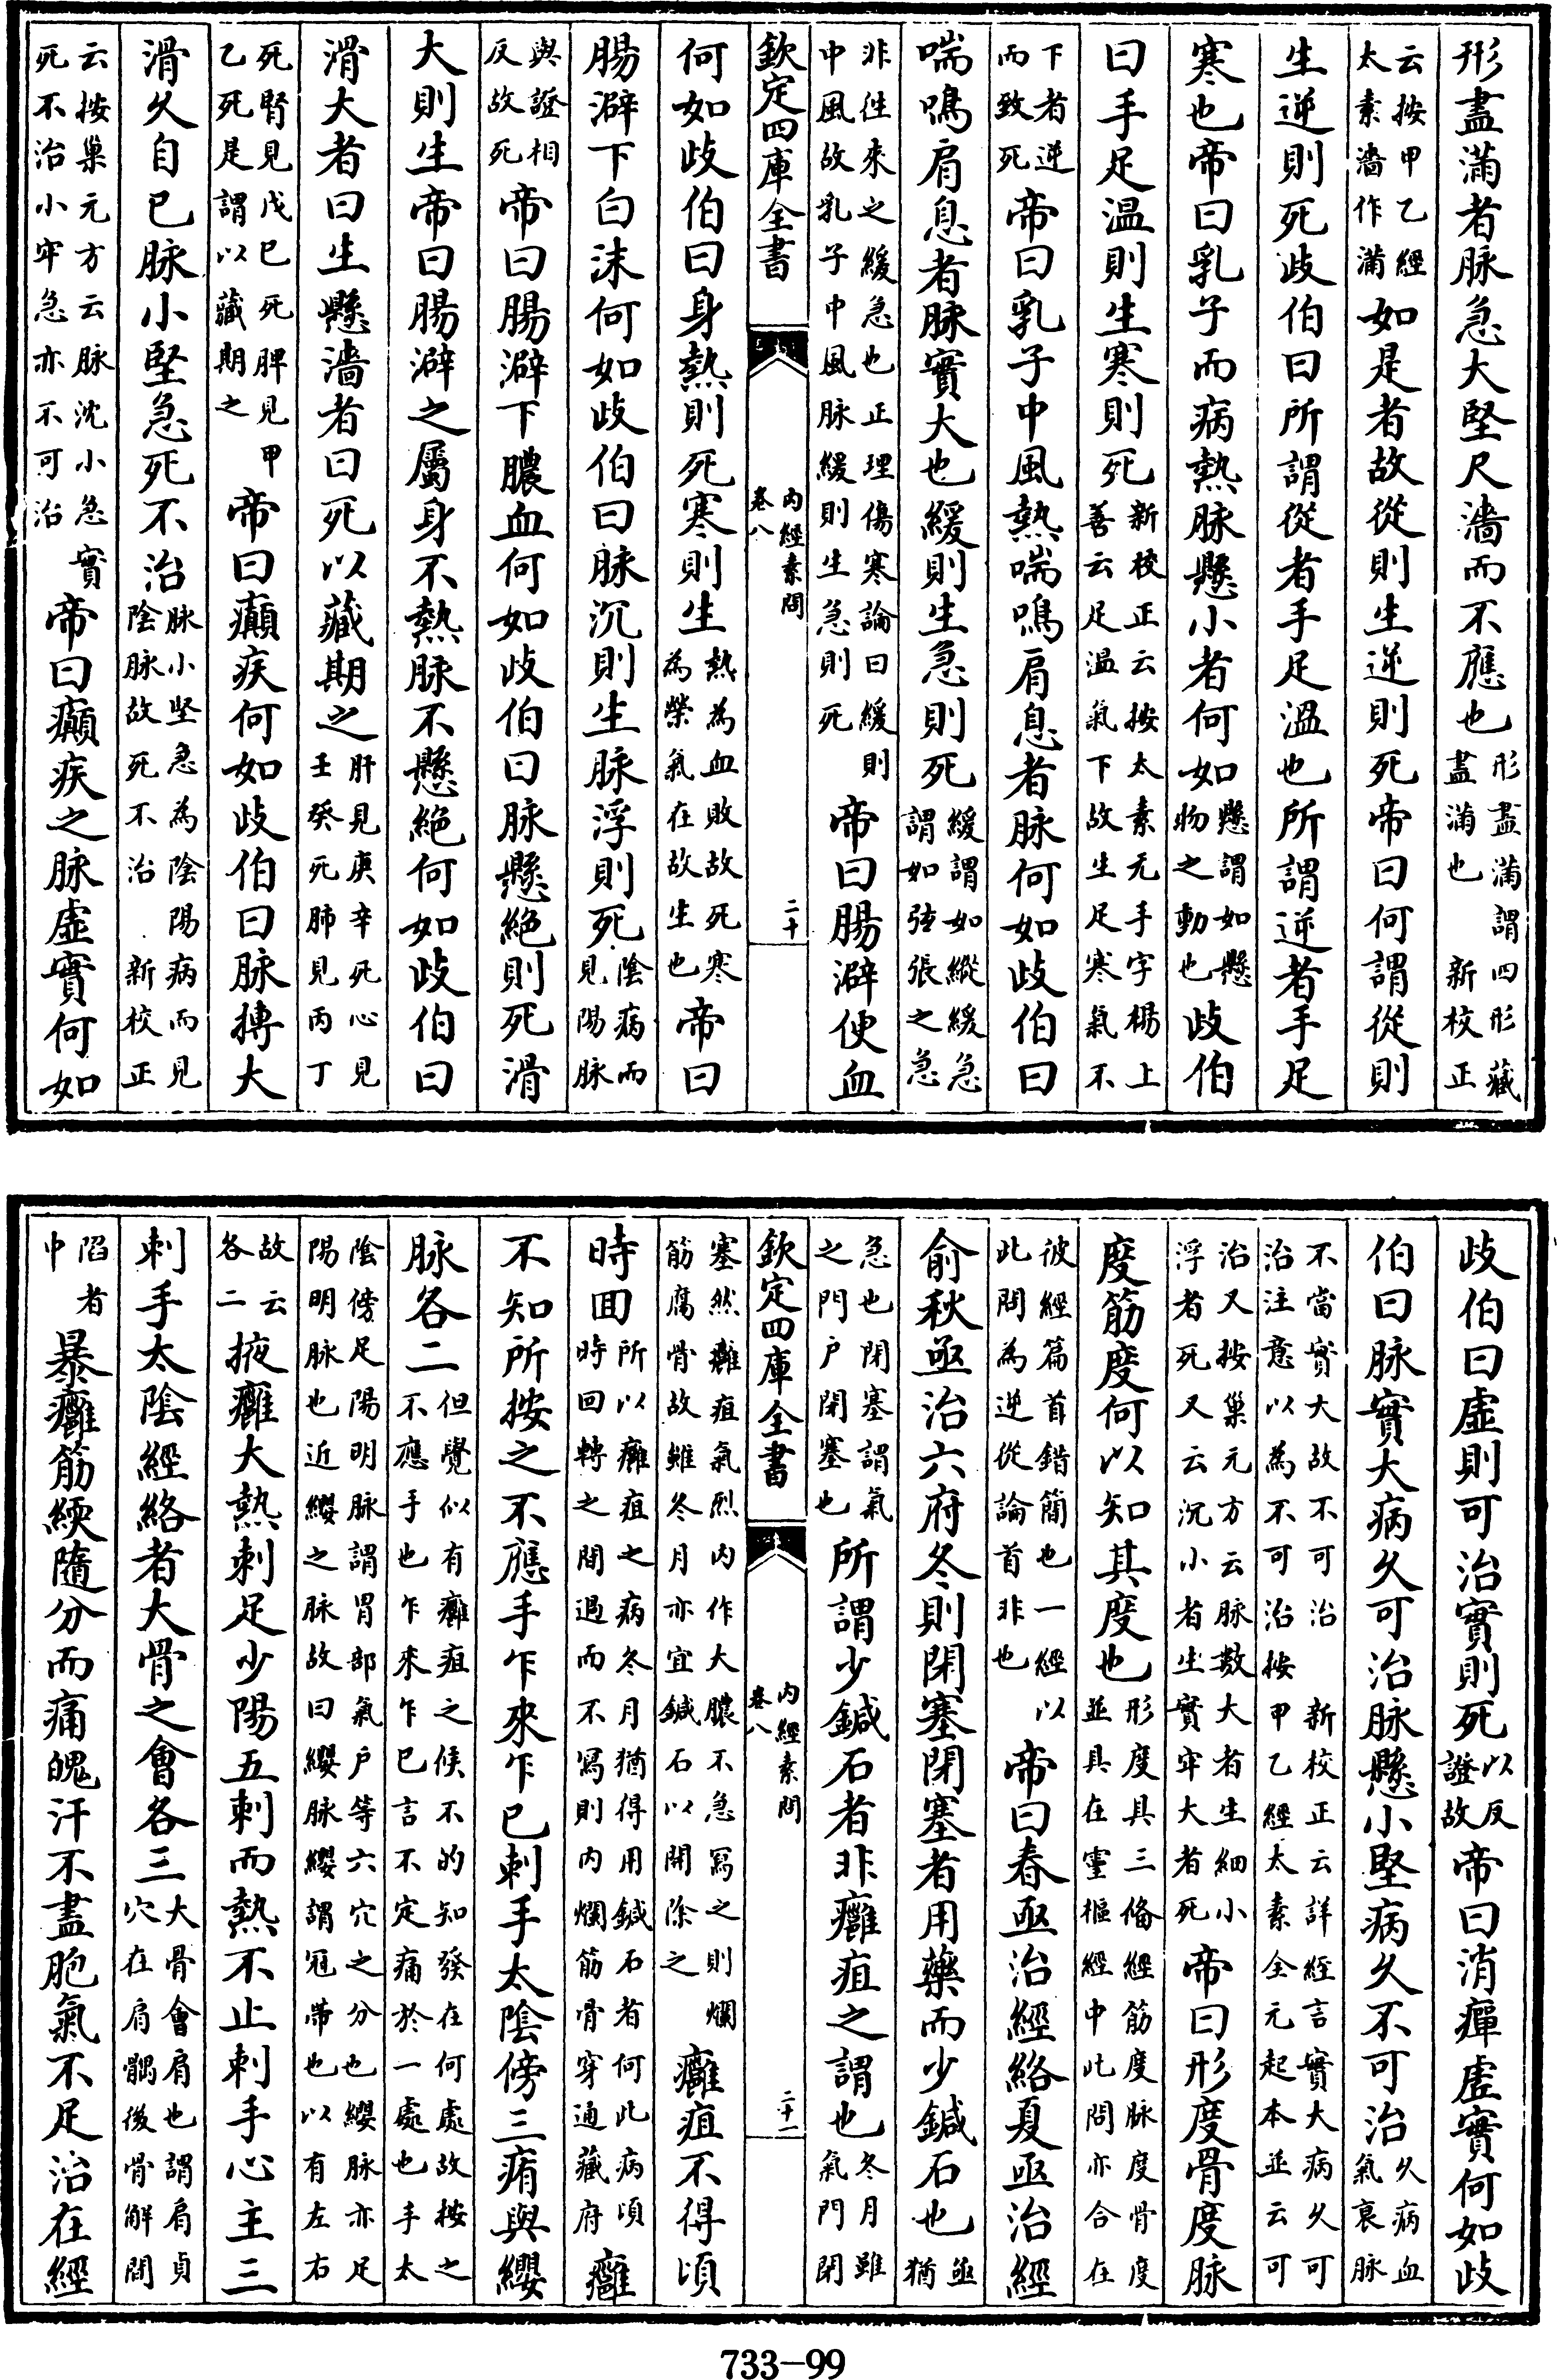 形盡滿者脉急大堅尺濇而不應也形盡滿謂四形藏盡滿也 新校正
云按甲乙經太素濇作滿如是者故從則生逆則死帝曰何謂從則
生逆則死歧伯曰所謂從者手足溫也所謂逆者手足
寒也帝曰乳子而病熱脉懸小者何如懸謂如懸物之動也歧伯
曰手足温則生寒則死新校正云按太素无手字楊上善云足温氣下故生足寒氣不
下者逆而致死帝曰乳子中風熱喘鳴肩息者脉何如歧伯曰
喘鳴肩息者脉實大也緩則生急則死緩謂如縱緩急謂如弦張之急
非徃來之緩急也正理傷寒論曰緩則中風故乳子中風脉緩則生急則死帝曰腸澼便血
欽定四庫全書 內經素問卷八 二十
何如歧伯曰身熱則死寒則生熱為血敗故死寒為榮氣在故生也帝曰
腸澼下白沫何如歧伯曰脉沉則生脉浮則死陰病而見陽脉
與證相反故死帝曰腸澼下膿血何如歧伯曰脉懸絕則死滑
大則生帝曰腸澼之屬身不熱脉不懸絕何如歧伯曰
滑大者曰生懸濇者曰死以藏期之肝見庚辛死心見壬癸死肺見丙丁
死腎見戊巳死脾見甲乙死是謂以藏期之帝曰癲疾何如歧伯曰脉搏大
滑久自已脉小堅急死不治脉小堅急為陰陽病而見陰脉故死不治 新校正
云按巢元方云脉沈小急實死不治小牢急亦不可治帝曰癲疾之脉虛實何如
歧伯曰虛則可治實則死以反證故帝曰消癉虛實何如歧
伯曰脉實大病久可治脉懸小堅病久不可治久病血氣衰脉
不當實大故不可治 新校正云詳經言實大病久可治注意以為不可治按甲乙經太素全元起本並云可
治又按巢元方云脉數大者生細小浮者死又云沉小者生實牢大者死帝曰形度骨度脉
度筋度何以知其度也形度具三備經筋度脉度骨度並具在靈樞經中此問亦合在
彼經篇首錯簡也一經以此問為逆從論首非也帝曰春亟治經絡夏亟治經
俞秋亟治六府冬則閉塞閉塞者用藥而少鍼石也亟猶
急也閉塞謂氣之門戶閉塞也所謂少鍼石者非癰疽之謂也冬月雖氣門閉
欽定四庫全書 內經素問卷八 二十一
塞然癰疽氣烈內作大膿不急寫之則爛筋腐骨故雖冬月亦宜鍼石以開除之癰疽不得頃
時回所以癰疽之病冬月猶得用鍼石者何此病頃時回轉之間過而不寫則內爛筋骨穿通藏府癰
不知所按之不應手乍來乍已刺手太陰傍三痏與纓
脉各二但覺似有癰疽之候不的知發在何處故按之不應手也乍來乍已言不定痛於一處也手太
陰傍足陽明脉謂胃部氣戶等六穴之分也纓脉亦足陽明脉也近纓之脉故曰纓脉纓謂冠帶也以有左右
故云各二掖癰大熱刺足少陽五刺而熱不止刺手心主三
刺手太陰經絡者大骨之會各三大骨會肩也謂肩貞穴在肩髃後骨解間
陷者中暴癰筋緛隨分而痛魄汗不盡胞氣不足治在經
733-99